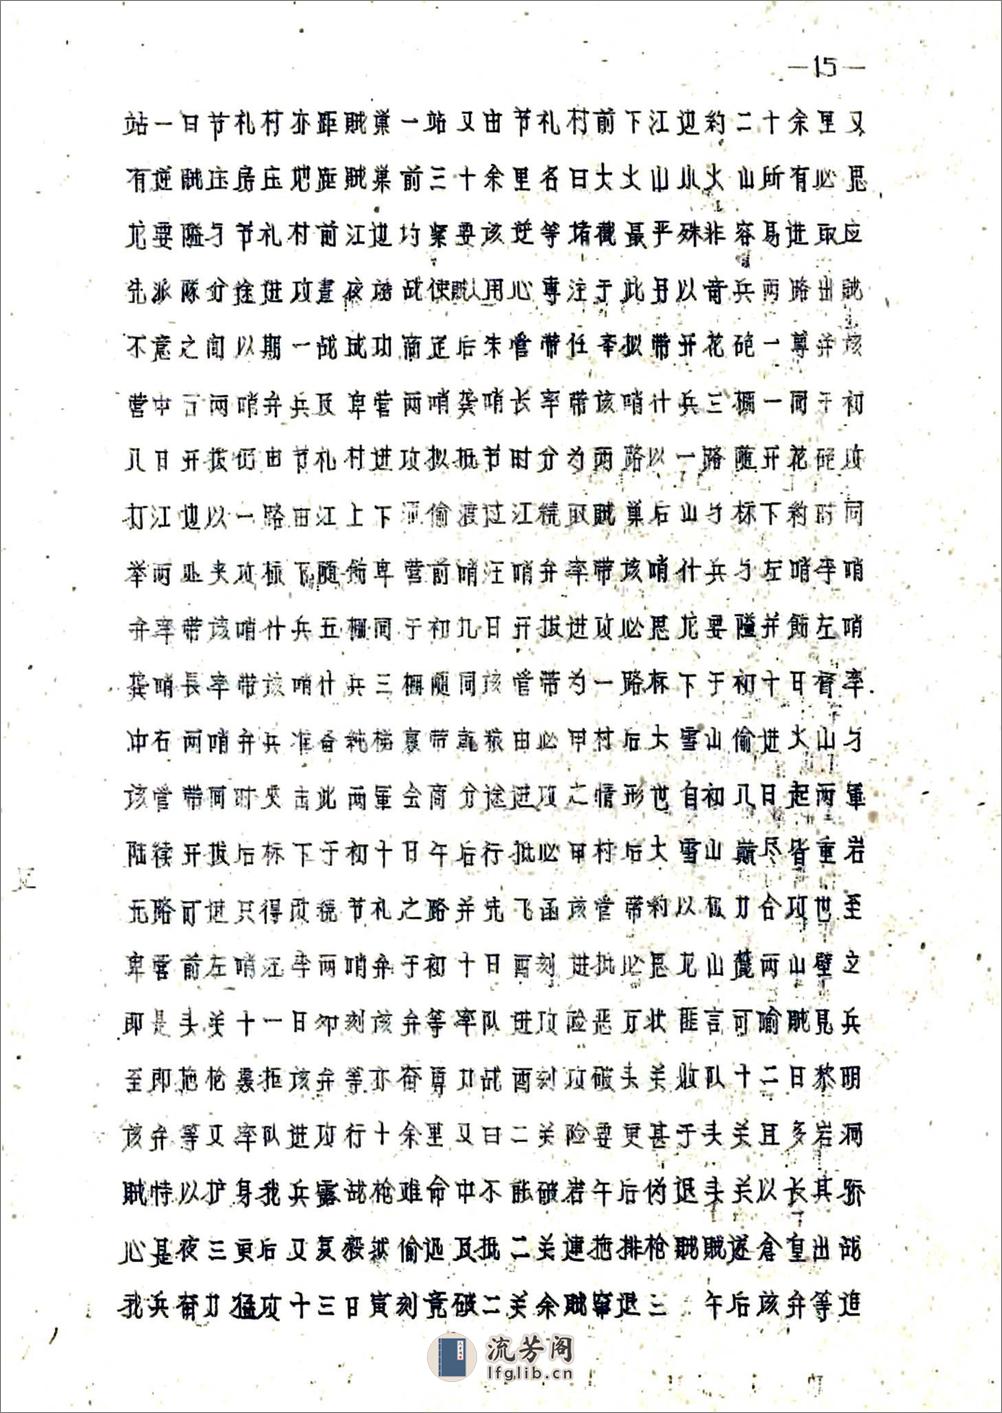 —15—
站一日节礼村亦距贼巢一站又由节礼村前下江边约二十余里又
有逆贼庄房庄垉距贼巢前三十余里名曰大火山小火山所有必思
龙要隘与节礼村前江边均紧要该逆等堵截最严殊非容易进取应
先派隊分途进攻晝夜治战使贼用心專注于此另以奇兵两路出贼
不意之间以期一战成功商定后朱管带任李拟带开花砲一尊并该
营中右两哨弁兵及卑营两哨龚哨长率带该哨什兵三棚一同于初
八日开拔仍由节礼村进攻拟抵节时分为两路以一路随开花砲攻
打江边以一路由江上下河偷渡过江繞取贼巢后山与标下约时同
举两处夹攻标下随飭卑营前哨汪哨弁率带该哨什兵与左哨李哨
弁率带该哨什兵五棚同于初九日开拔进攻必思龙要隘并飭左哨
龚哨長率带该哨什兵三棚随同该管带为一路标下于初十日督率
冲右两哨弁兵准备純梯裹带乾粮由必甲村后大雪山偷进火山与
该管带同时夹击此两軍会商分途进攻之情形也自初八日起两軍
陆续开拔后标下于初十日午后行抵必甲村后大雪山巅尽皆重岩
无路可进只得改绕节礼之路并先飞函该管带约以极力合攻也至
卑营前左哨汪李两哨弁于初十日酉刻进抵必思龙山麓两山壁立
即是头关十一日卯刻该弁等率队进攻险恶万状匪言可喻贼见兵
至即施枪轟拒该弁等亦奋勇力战酉刻攻破头关收队十二日黎明
该弁等又率队进攻行十余里又曰二关险要更甚于头关且多岩洞
贼恃以护身我兵露战枪难命中不能破岩午后伪退头关以长其骄
心是夜三更后又复骰拔偷迅及抵二关連抱排枪贼贼逐倉皇出战
我兵奋力猛攻十三日寅刻竟破二关余贼窜退三 午后该弁等追
流芳阁
lfglib.cn